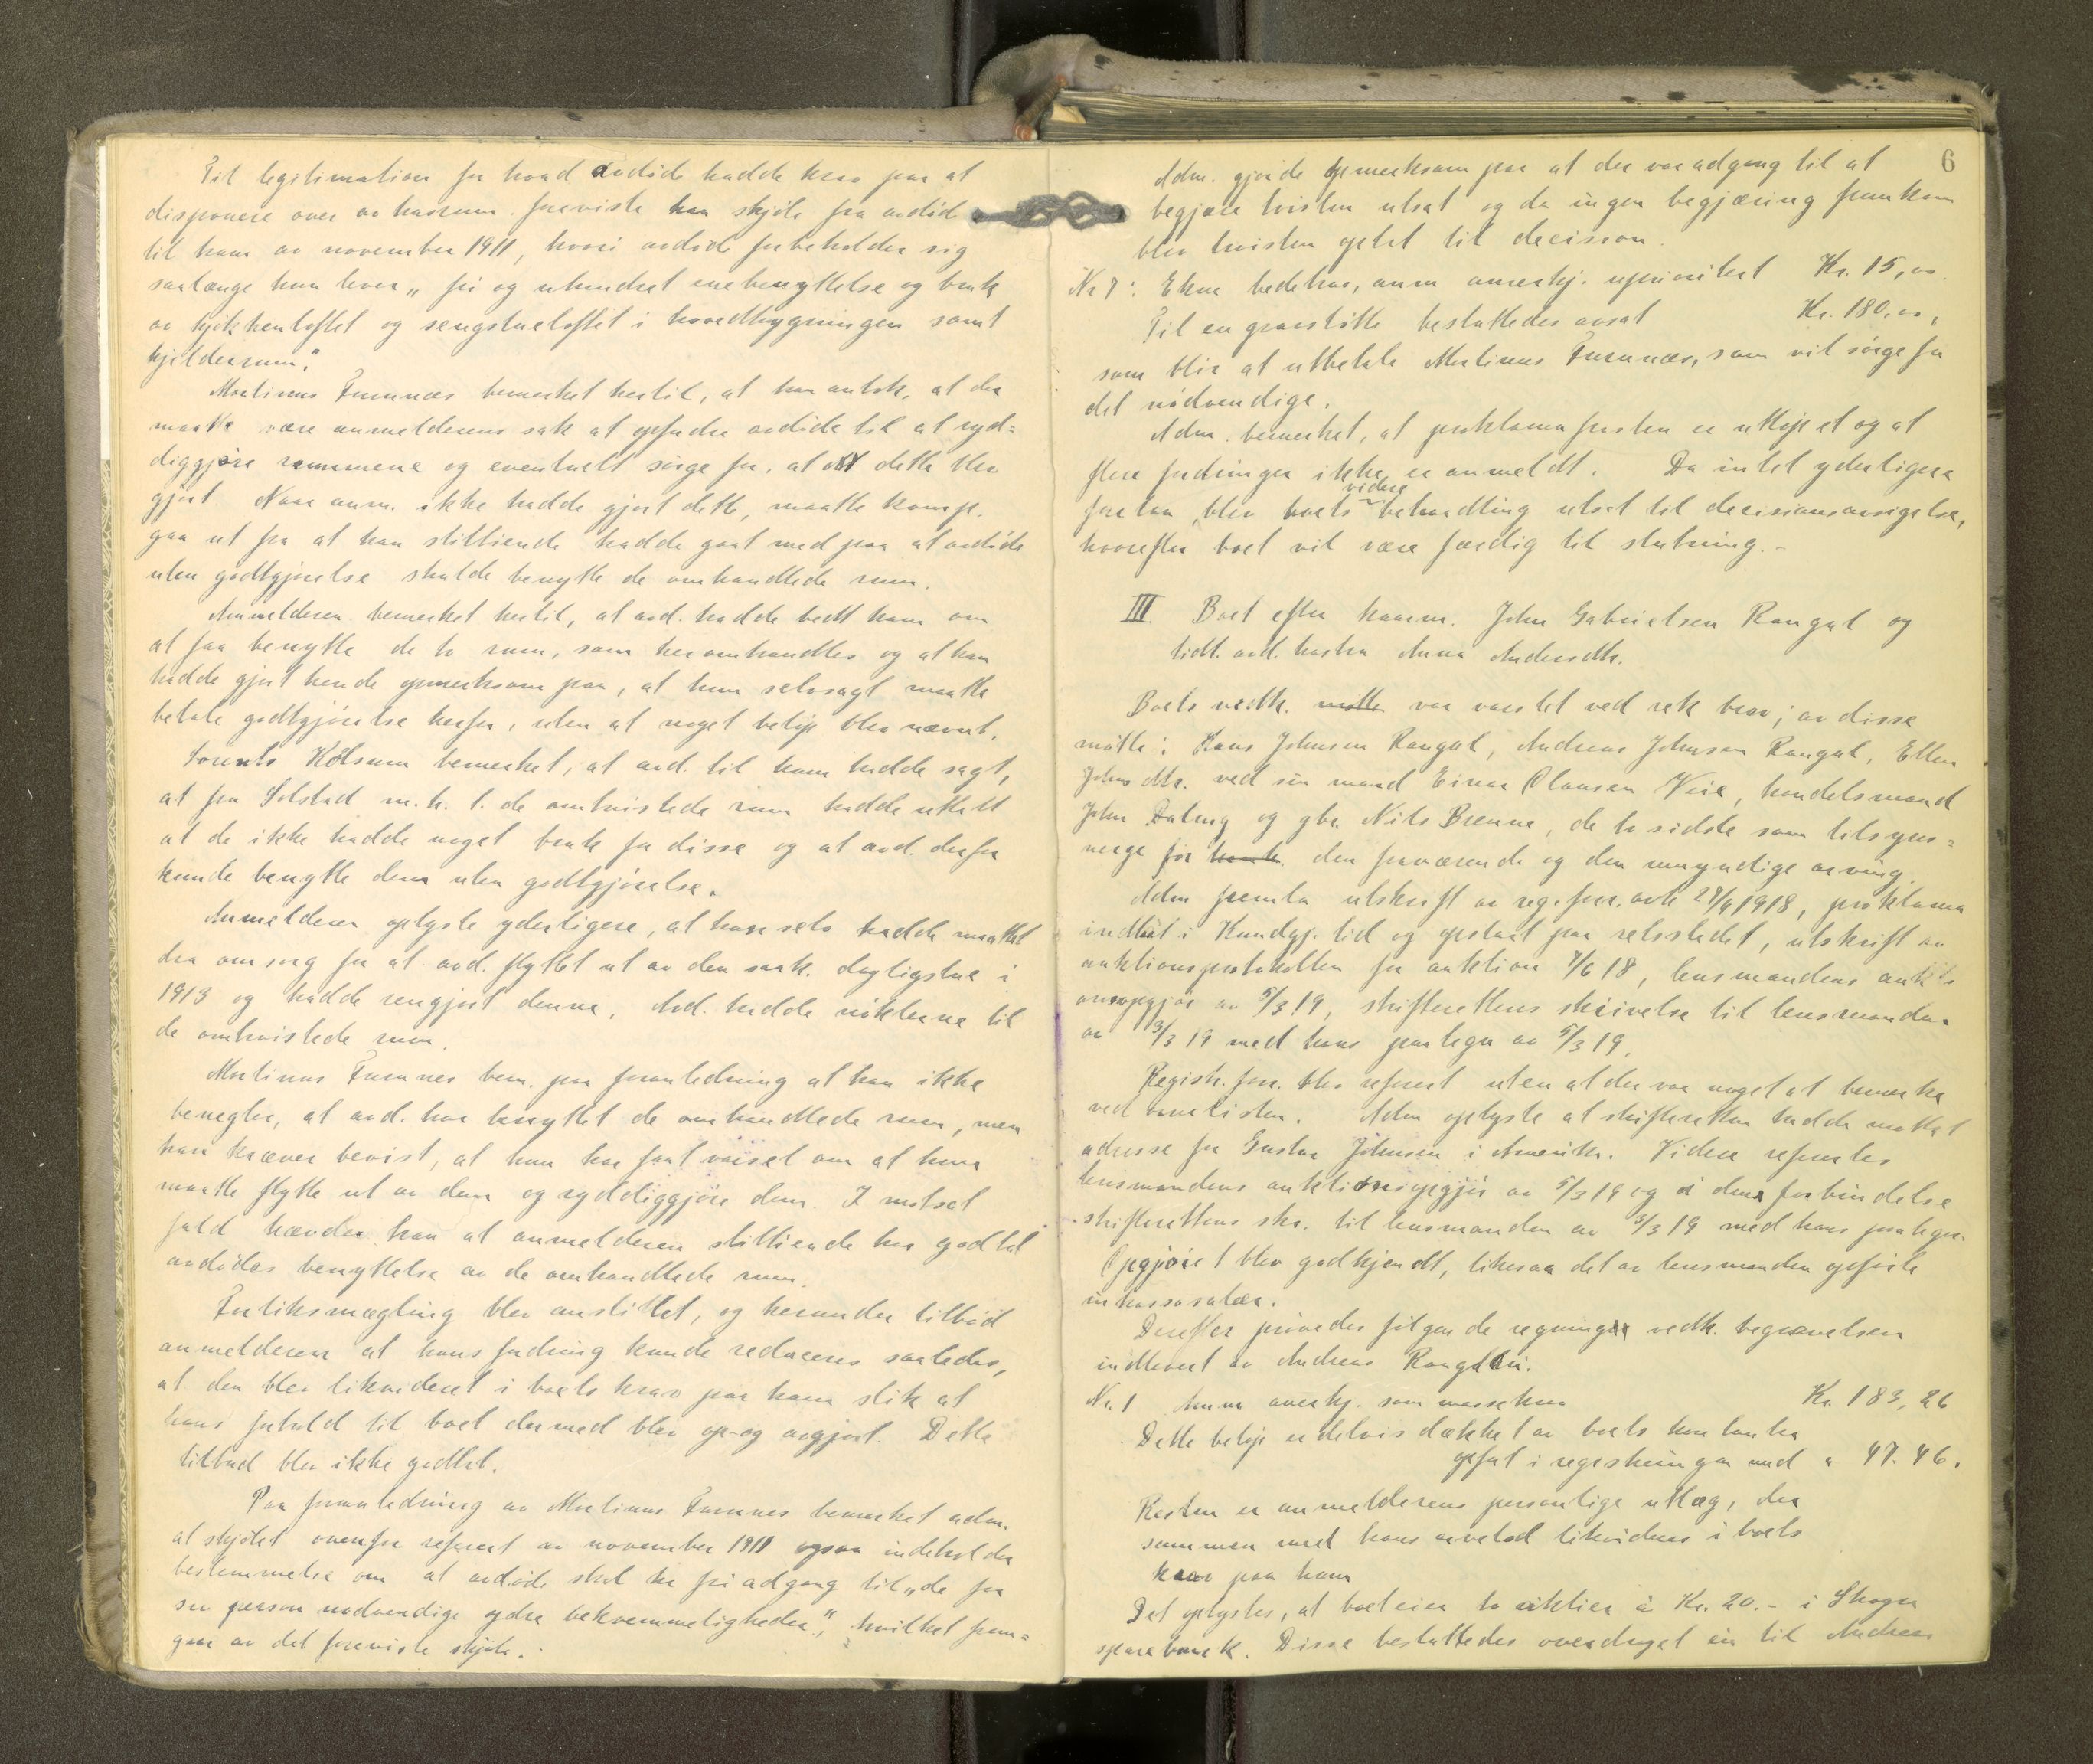 Til legitimation for hvad avdöde hadde krav paa at
disponere over av husrum. foreviste han skjöte fra avdöd
til ham av november 1911, hvori avdöde forbeholder sig
saalænge hun lever „fri og uhindret enebenyttelse og bruk
av kjökkenloftet og sengstueloftet i hovedbygningen samt
kjelderrum."
Martinus Furunes bemerket hertil, at han antok, at det
maatte være anmelderens sak at opfordre avdöde til at ryd-
diggjöre rummene og eventuelt sörge for, at dette blev
gjort. Naar anm. ikke hadde gjort dette, maatte komp.
gaa ut fra at han stiltiende hadde gaat med paa at avdöde
uten godtgjörelse skulde benytte de omhandlede rum.
Anmelderen bemerket hertil, at avd. hadde bedt ham om
at faa benytte de to rum, som her omhandles og at han
hadde gjort hende opmerksom paa, at hun selvsagt maatte
betale godtgjörelse herfor, uten at noget belöp blev nævnt.
Lorents Kolsum bemerket, at avd. til ham hadde sagt,
at fru Solstad m. h. t. de omtvistede rum hadde uttalt
at de ikke hadde noget bruk for disse og at avd. derfor
kunde benytte dem uten godtgjörelse.
Anmelderen oplyste yderligere, at han selv hadde maattet
dra omsorg for at avd. flyttet ut av den saak. dagligstue i
1913 og hadde rengjort denne. Avd. hadde nöklerne til
de omtvistede rum.
Martinus Furunes bem. paa foranledning at han ikke
benegter, at avd. har benyttet de omhandlede rum, men
han kræver bevist, at hun har faat varsel om at hun
maatte flytte ut av dem og ryddiggjöre dem. I motsat
fald hævder han at anmelderen stiltiende har godtat
avdödes benyttelse av de omhandlede rum.
Forliksmægling blev anstillet, og herunder tilböd
anmelderen at hans fordring kunde reduceres saaledes,
at den blev likvideret i boets krav paa ham slik at
hans forhold til boet dermed blev op- og avgjort. Dette
tilbud blev ikke godtat.
Paa foranledning av Martinus Furunes bemerket adm.
at skjötet ovenfor referert av november 1911 ogsaa indeholder
bestemmelse om at avdöde skal ha fri adgang til „de for
sin person nødvendige ydre bekvemmeligheder", hvilket frem-
gaar av det foreviste skjöte.
6
Adm. gjorde opmerksom paa at der var adgang til at
begjære tvisten utsat og da ingen begjæring fremkom
blev tvisten optat til decision.
Nr 7: Ekne bedehus, anm anerkj. uprioritert Kr. 15,00.
Til en gravstötte besluttedes avsat Kr. 180,00,
som blir at utbetale Martinus Furunes, som vil sörge for
det nödvendige.
Adm. bemerket, at proklamafristen er utlöpet og at
flere fordringer ikke er anmeldt. Da intet yderligere
videre
forelaa, blev boets behandling utsat til decisionsavsigelse,
hvorefter boet vil være færdig til slutning.-
III. Boet efter kaarm. John Gabrielsen Rangul og
tidl. avd. hustru Anna Andersdtr.
Boets vedk. motte var varslet ved rek brev; av disse
mötte: Hans Johnsen Rangul, Andreas Johnsen Rangul, Ellen
Johnsdtr. ved sin mand Einar Olausen Veie, handelsmand
John Daling og gbr. Nils Brenne, de to sidste som tilsyns-
verge for den fraværende og den umyndige arving.
Adm fremla utskrift av reg. forr. avh 27/4 1918, proklama
indtat i Kundgj. tid og opslaat paa retsstedet, utskrift av
auktionsprotokollen for auktion 7/6 18, lensmandens aukti-
onsopgjör av 5/3 19, skifterettens skrivelse til lensmanden
av 3/3 19 med hans paategn av 5/3 19.
Registr. forr. blev referert uten at der var noget at bemerke
ved arvelisten. Adm oplyste at skifteretten hadde mottat
adresse for Gustav Johnsen i Amerika. Videre refertes
lensmandens auktionsopgjör av 5/3 19 og i dens forbindelse
skifterettens skr. til lensmanden av 3/3 19 med hans paategn.
Opgjöret blev godkjendt, likesaa det av lensmanden opförte
inkassosalær.
Derefter prövedes fölgende regninger vedk. begravelsen
indlevert av Andreas Rangul:
Nr. 1 Anm anerkj. som massekrav Kr. 183,26
Dette belöp er delvis dækket av boets kontanter
opfört i registreringen med „ 47.46.
Resten er anmelderens personlige utlæg, der
sammen med hans arvelod likvideres i boets
krav paa ham
Det oplystes, at boet eier to aktier à Kr. 20.- i Skogn
sparebank. Disse besluttedes overdraget en til Andreas